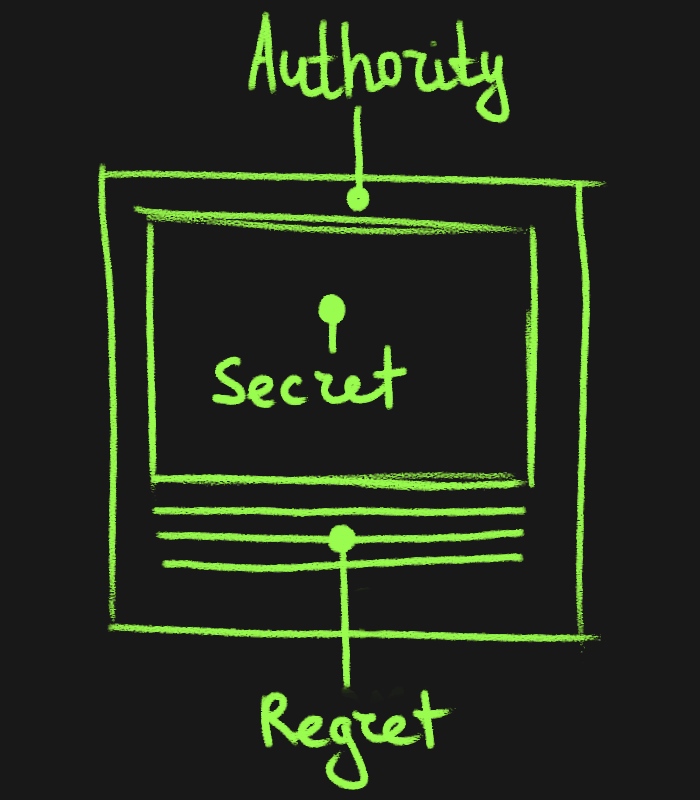 Authority
Secret
Regret